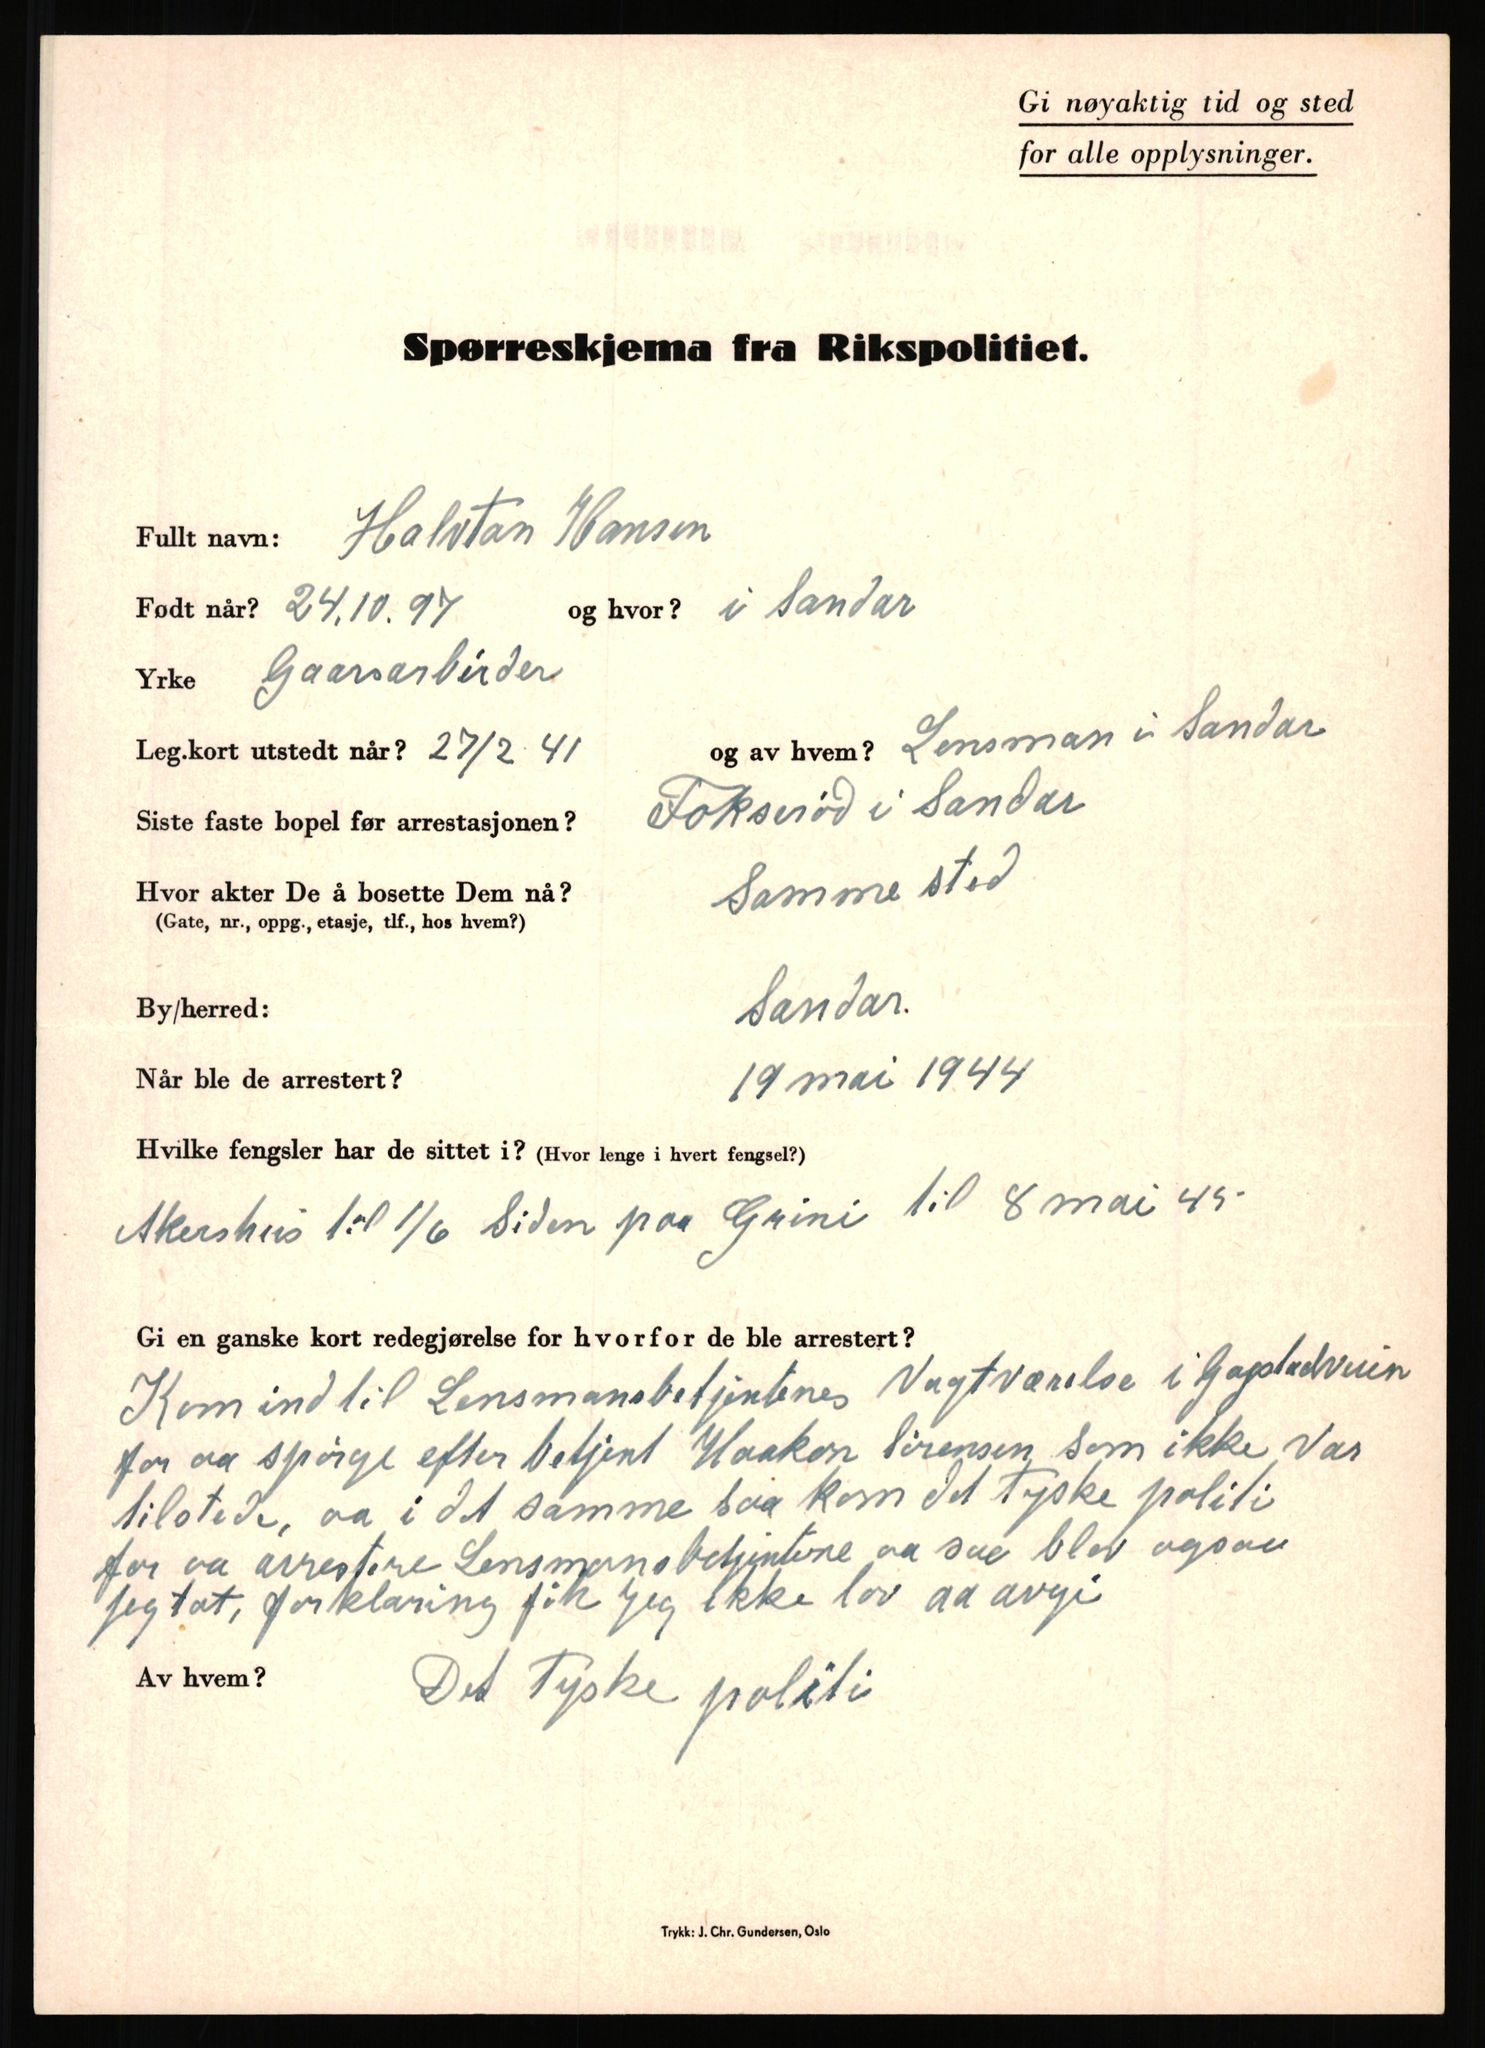 Gi nøyaktig tid og sted
for alle opplysninger.
Spørreskjema fra Rikspolitiet.
Fullt navn: Halvtan Hansen
Født når? 24.10.97 og hvor? i Sandar
Yrke Gaarsarbeider
Leg.kort utstedt når? 27/2 41 og av hvem? Lensman i Sandar
Siste faste bopel før arrestasjonen? Fokseröd i Sandar
Hvor akter De å bosette Dem nå? Samme sted
(Gate, nr., oppg., etasje, tlf., hos hvem?)
By/herred: Sandar.
Når ble de arrestert? 19 mai 1944
Hvilke fengsler har de sittet i? (Hvor lenge i hvert fengsel?)
Akershus til 1/6 Siden paa Grini til 8 mai 45
Gi en ganske kort redegjørelse for hvorfor de ble arrestert?
Kom ind til Lensmansbetjentenes Vagtværelse i
for aa spörge efter betjent Haakon Sörensen som ikke var
tilstede, aa i det samme saa kom det Tyske politi
for aa arrestere Lensmansbetjentene aa saa blev ogsaa
jeg tat, forklaring fik jeg ikke lov aa avgi
Av hvem? Det Tyske politi
Trykk: J. Chr. Gundersen, Oslo